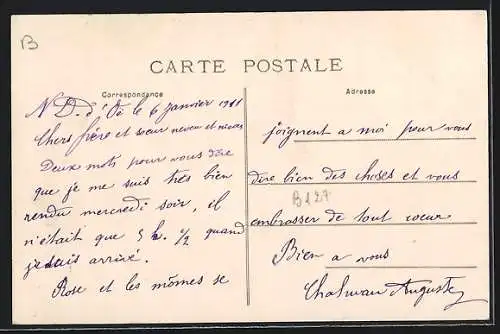 B
CARTE POSTALE
Correspondance
Adresse
N. D. d'Oé le 6 Janvier 1911
Chers frère et soeur neveu et nieces
Deux mots pour vous dire
que je me suis très bien
rendu mercredi soir, il
n'était que 5 h. 1/2 quand
je suis arrivé.
Rose et les mômes se
joignent a moi pour vous
dire bien des choses et vous
B127
embrasser de tout coeur
Bien a vous
Auguste